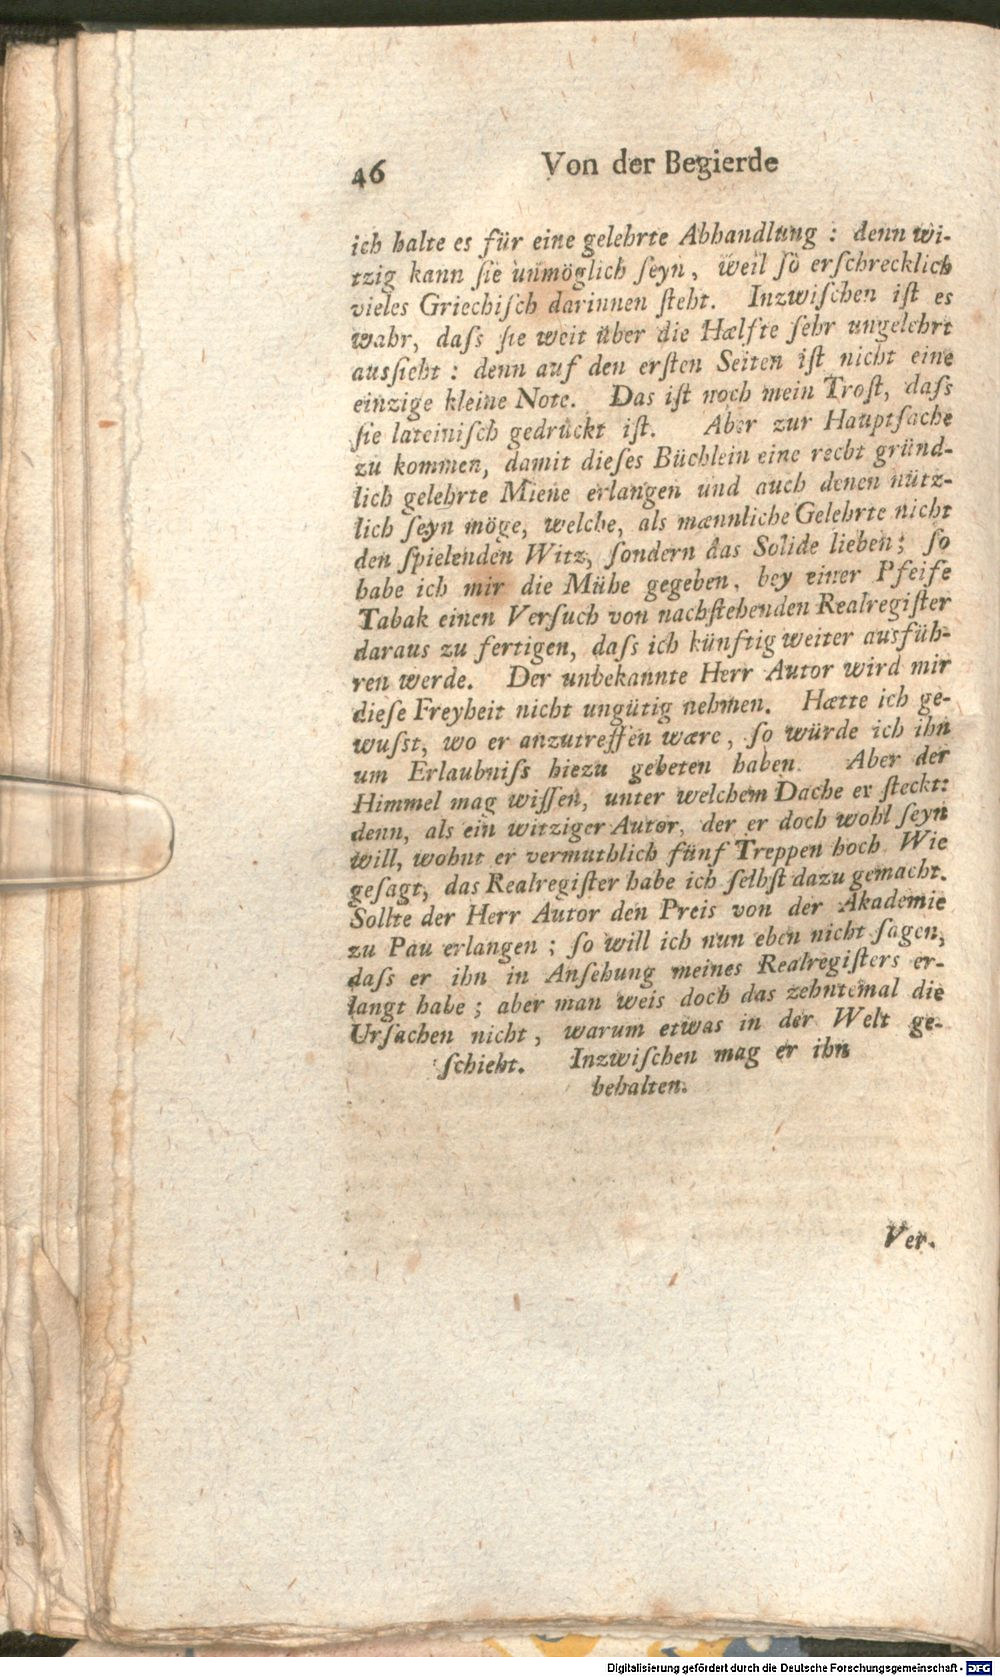 46 Von der Begierde
ich halte es für eine gelehrte Abhandlung : denn wi-
tzig kann ſie unmöglich ſeyn, weil ſo erſchrecklich
vieles Griechiſch darinnen ſteht. Inzwiſchen iſt es
wahr, daſs ſie weit über die Hælfte ſehr ungelehrt
ausſieht : denn auf den erſten Seiten iſt nicht eine
einzige kleine Note. Das iſt noch mein Troſt, daſs
ſie lateiniſch gedruckt iſt. Aber zur Hauptſache
zu kommen, damit dieſes Büchlein eine recht gründ-
lich gelehrte Miene erlangen und auch denen nütz-
lich ſeyn möge, welche, als mænnliche Gelehrte nicht
den ſpielenden Witz, ſondern das Solide lieben; ſo
habe ich mir die Mühe gegeben, bey einer Pfeife
Tabak einen Verſuch von nachſtehenden Realregiſter
daraus zu fertigen, daſs ich künftig weiter ausfüh-
ren werde. Der unbekannte Herr Autor wird mir
dieſe Freyheit nicht ungütig nehmen. Hætte ich ge-
wuſst, wo er anzutreffen wære, ſo würde ich ihn
um Erlaubniſs hiezu gebeten haben. Aber der
Himmel mag wiſſen, unter welchem Dache er ſteckt:
denn, als ein witziger Autor, der er doch wohl ſeyn
will, wohnt er vermuthlich fünf Treppen hoch. Wie
geſagt, das Realregiſter habe ich ſelbſt dazu gemacht.
Sollte der Herr Autor den Preis von der Akademie
zu Pau erlangen ; ſo will ich nun eben nicht ſagen,
daſs er ihn in Anſehung meines Realregiſters er-
langt habe ; aber man weis doch das zehntemal die
Urſachen nicht, warum etwas in der Welt ge-
ſchieht. Inzwiſchen mag er ihn
behalten.
Ver-
Digitalisierung gefördert durch die Deutsche Forschungsgemeinschaft - DFG